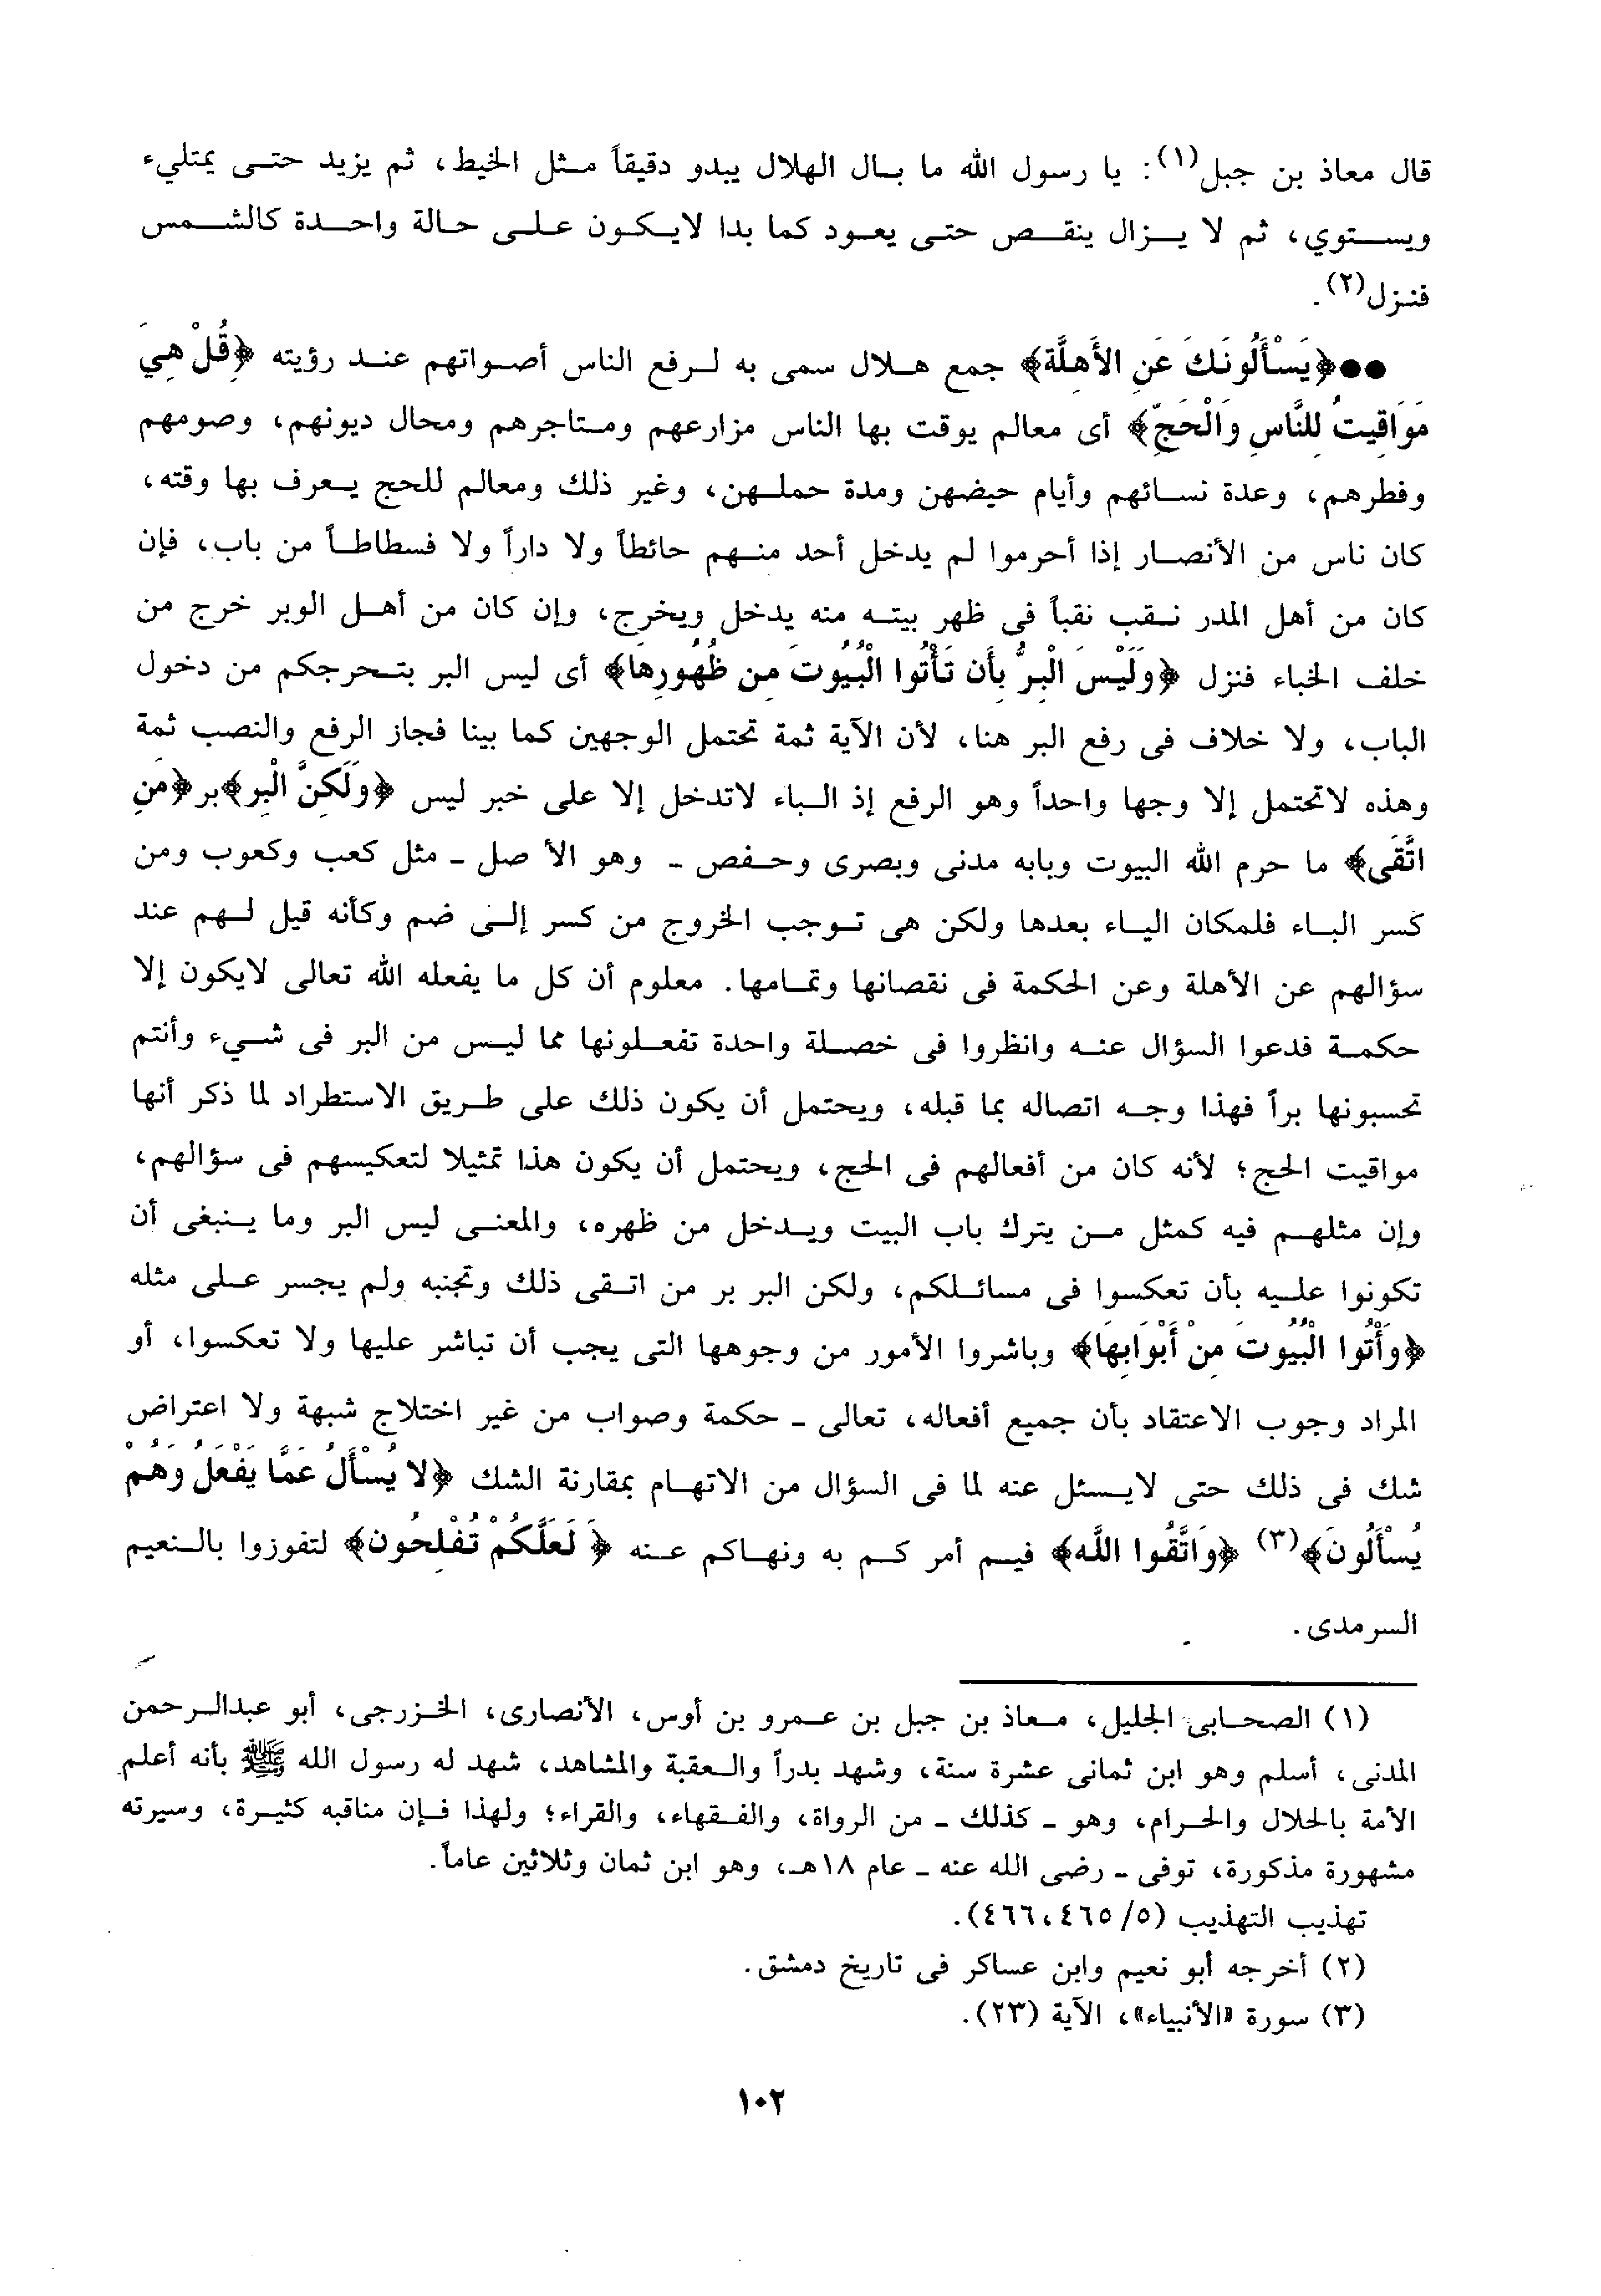 قال معاذ بن جبل(١): يا رسول الله ما بال الهلال يبدو دقيقاً مثل الخيط، ثم يزيد حتى يمتليء
ويستوي، ثم لا يزال ينقص حتى يعود كما بدا لايكون على حالة واحدة كالشمس
فنزل(٢).
●●﴿يَسْأَلُونَكَ عَنِ الأَهِلَّة﴾ جمع هلال سمى به لرفع الناس أصواتهم عند رؤيته ﴿قُلْ هِيَ
مَوَاقِيتُ لِلنَّاسِ وَالْحَجِّ﴾ أى معالم يوقت بها الناس مزارعهم ومتاجرهم ومحال ديونهم، وصومهم
وفطرهم، وعدة نسائهم وأيام حيضهن ومدة حملهن، وغير ذلك ومعالم للحج يعرف بها وقته،
كان ناس من الأنصار إذا أحرموا لم يدخل أحد منهم حائطاً ولا داراً ولا فسطاطاً من باب، فإن
كان من أهل المدر نقب نقباً فى ظهر بيته منه يدخل ويخرج، وإن كان من أهل الوبر خرج من
خلف الخباء فنزل ﴿وَلَيْسَ الْبِرُّ بِأَن تَأْتُوا الْبُيُوتَ مِن ظُهُورِهَا﴾ أى ليس البر بتحرجكم من دخول
الباب، ولا خلاف فى رفع البر هنا، لأن الآية ثمة تحتمل الوجهين كما بينا فجاز الرفع والنصب ثمة
وهذه لاتحتمل إلا وجها واحداً وهو الرفع إذ الباء لاتدخل إلا على خبر ليس ﴿وَلَكِنَّ الْبِر﴾بر﴿مَنِ
اتَّقَى﴾ ما حرم الله البيوت وبابه مدنى وبصرى وحفص - وهو الأ صل - مثل كعب وكعوب ومن
كسر الباء فلمكان الياء بعدها ولكن هى توجب الخروج من كسر إلى ضم وكأنه قيل لهم عند
سؤالهم عن الأهلة وعن الحكمة فى نقصانها وتمامها. معلوم أن كل ما يفعله الله تعالى لايكون إلا
حكمة فدعوا السؤال عنه وانظروا فى خصلة واحدة تفعلونها مما ليس من البر فى شيء وأنتم
تحسبونها براً فهذا وجه اتصاله بما قبله، ويحتمل أن يكون ذلك على طريق الاستطراد لما ذكر أنها
مواقيت الحج؛ لأنه كان من أفعالهم فى الحج، ويحتمل أن يكون هذا تمثيلا لتعكيسهم فى سؤالهم،
وإن مثلهم فيه كمثل من يترك باب البيت ويدخل من ظهره، والمعنى ليس البر وما ينبغى أن
تكونوا عليه بأن تعكسوا فى مسائلكم، ولكن البر بر من اتقى ذلك وتجنبه ولم يجسر على مثله
﴿وَأْتُوا الْبُيُوتَ مِنْ أَبْوَابِهَا﴾ وباشروا الأمور من وجوهها التى يجب أن تباشر عليها ولا تعكسوا، أو
المراد وجوب الاعتقاد بأن جميع أفعاله، تعالى - حكمة وصواب من غير اختلاج شبهة ولا اعتراض
شك فى ذلك حتى لايسئل عنه لما فى السؤال من الاتهام بمقارنة الشك ﴿لا يُسْأَلُ عَمَّا يَفْعَلُ وَهُمْ
يُسْأَلُونَ﴾(٣) ﴿وَاتَّقُوا اللَّه﴾ فيم أمر كم به ونهاكم عنه ﴿لَعَلَّكُمْ تُفْلِحُون﴾ لتفوزوا بالنعيم
السرمدى.
(١) الصحابى الجليل، معاذ بن جبل بن عمرو بن أوس، الأنصارى، الخزرجى، أبو عبدالرحمن
المدنى، أسلم وهو ابن ثمانى عشرة سنة، وشهد بدراً والعقبة والمشاهد، شهد له رسول الله ﷺ بأنه أعلم
الأمة بالحلال والحرام، وهو - كذلك - من الرواة، والفقهاء، والقراء؛ ولهذا فإن مناقبه كثيرة، وسيرته
مشهورة مذكورة، توفى - رضى الله عنه - عام ١٨هـ، وهو ابن ثمان وثلاثين عاماً.
تهذيب التهذيب (٥/ ٤٦٥، ٤٦٦).
(٢) أخرجه أبو نعيم وابن عساكر فى تاريخ دمشق.
(٣) سورة «الأنبياء»، الآية (٢٣).
١٠٢